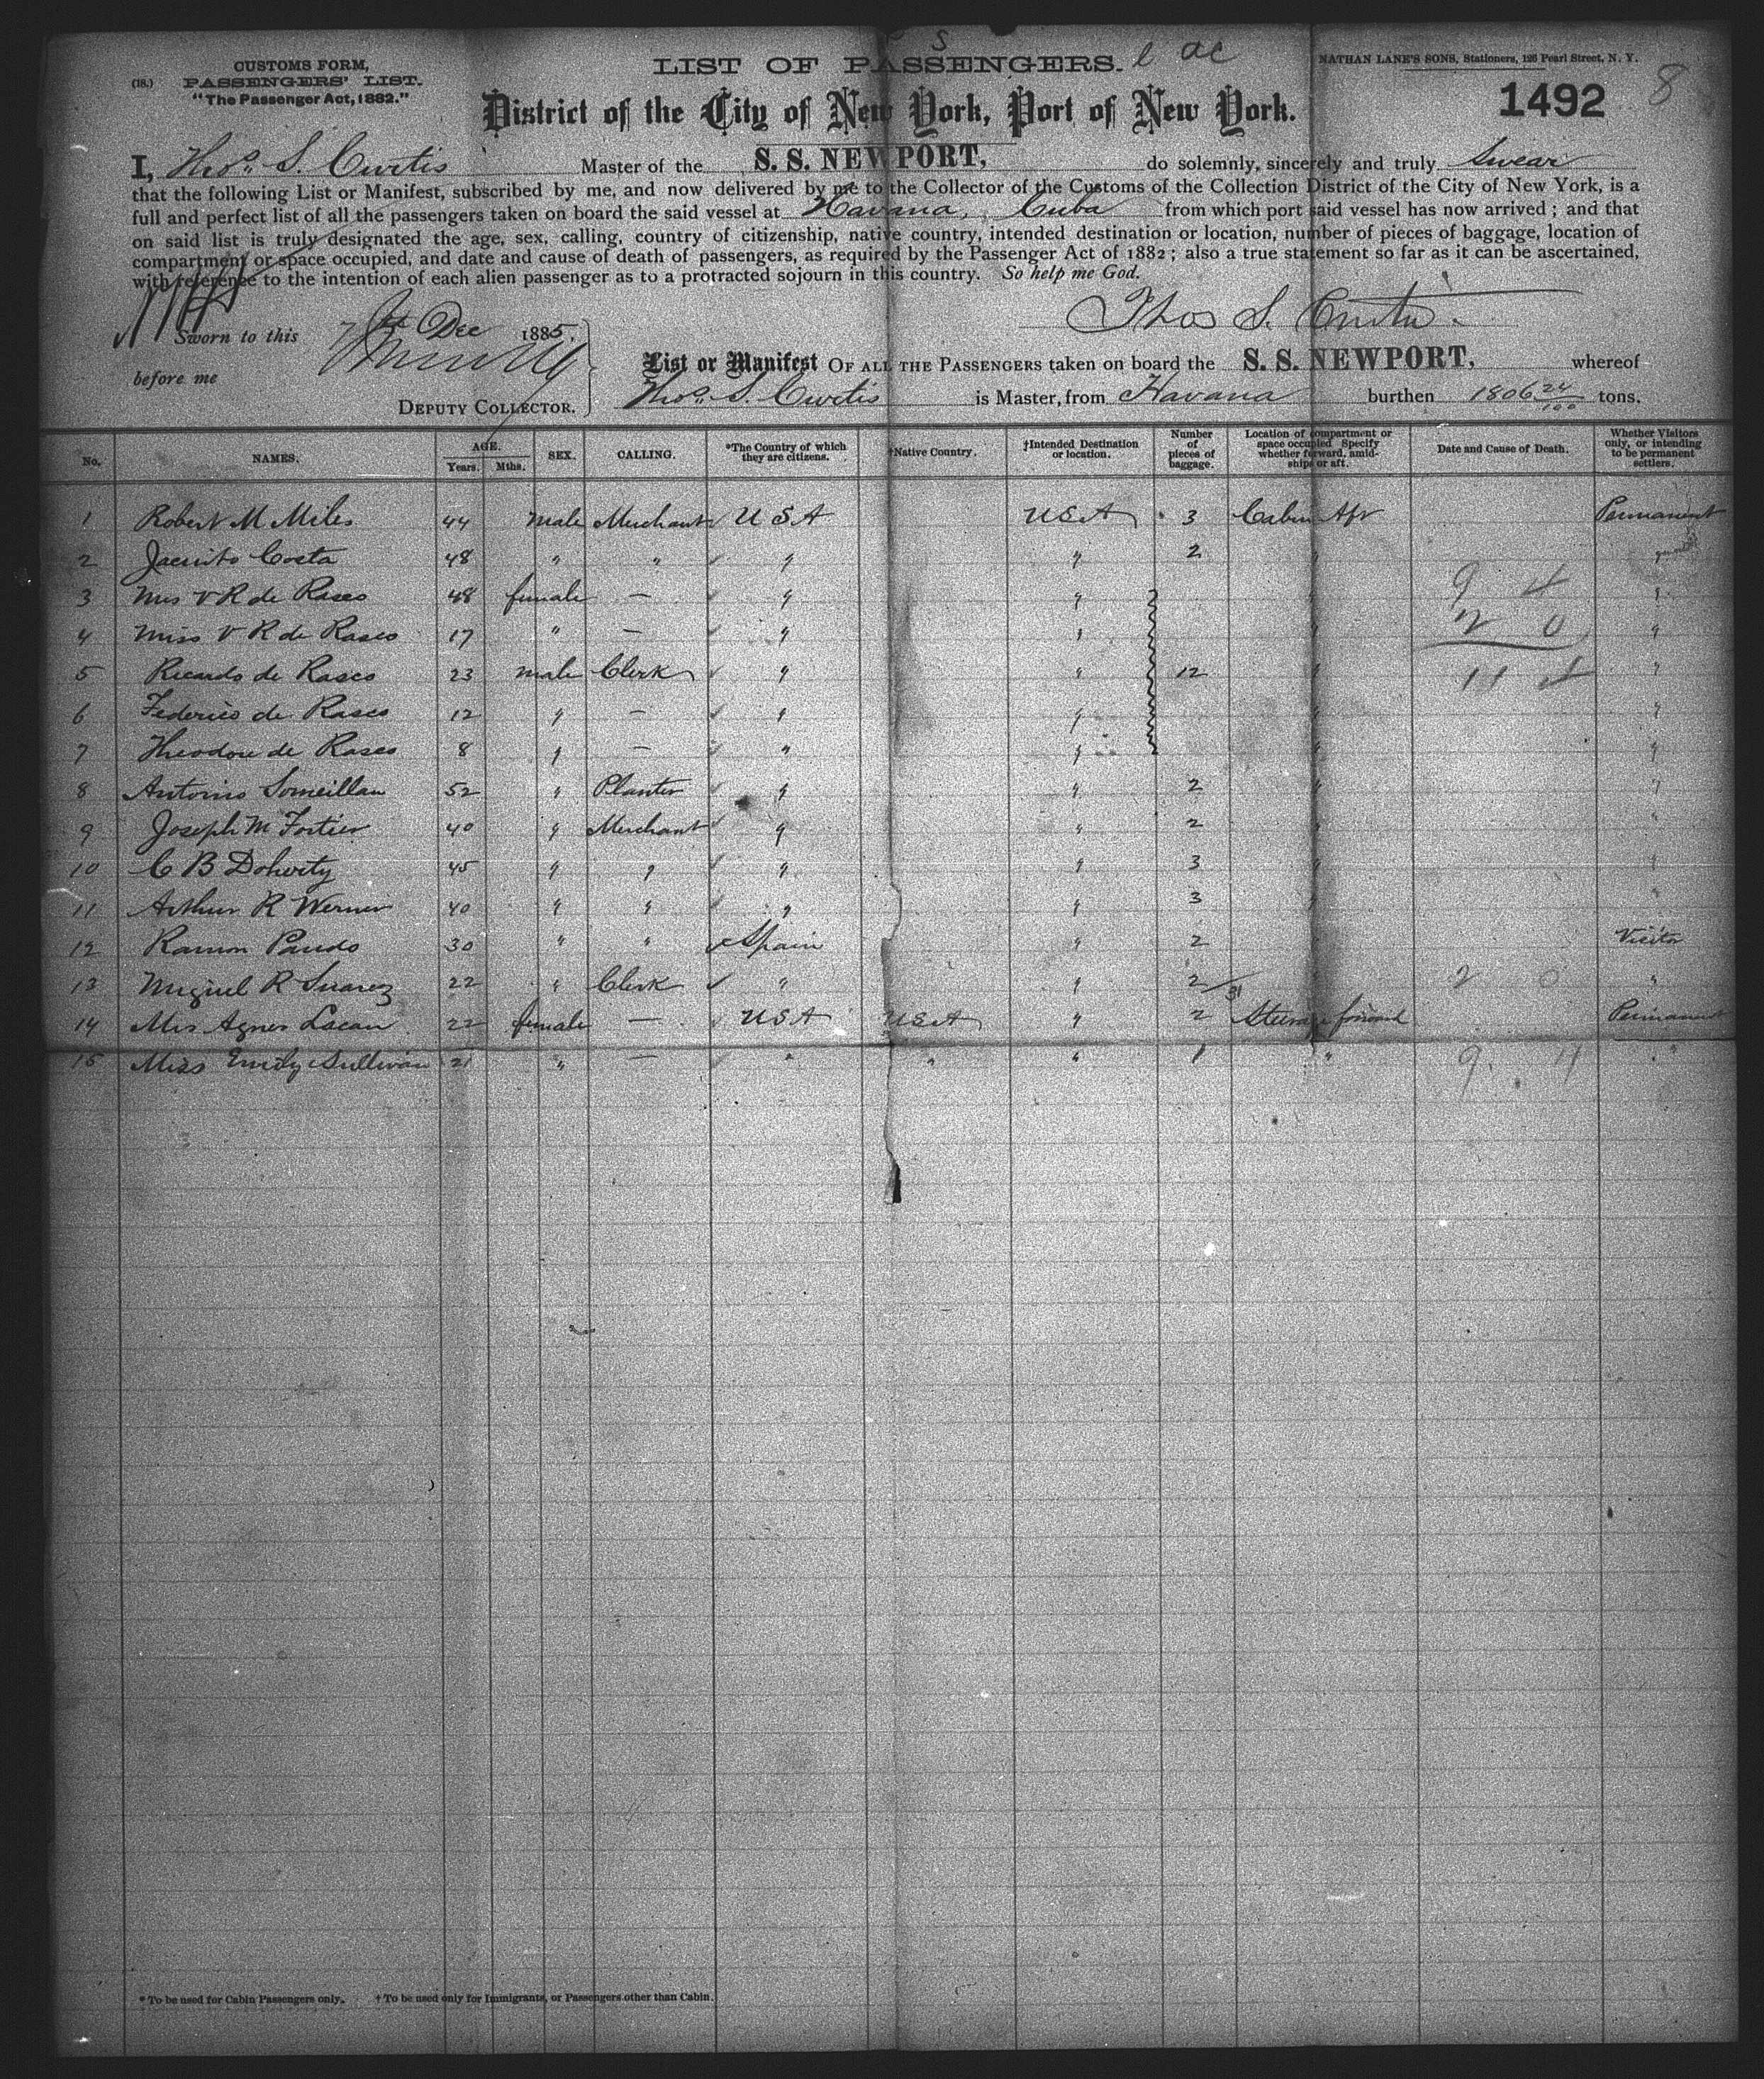 CUSTOMS FORM,
(18.) PASSENGERS' LIST.
"The Passenger Act, 1882."
LIST OF PASSENGERS.
NATHAN LANE'S SONS, Stationers, 126 Pearl Street, N. Y.
District of the City of New York, Port of New York.
1492 8
I, Thos. S. Curtis Master of the S. S. NEWPORT, do solemnly, sincerely and truly Swear
that the following List or Manifest, subscribed by me, and now delivered by me to the Collector of the Customs of the Collection District of the City of New York, is a
full and perfect list of all the passengers taken on board the said vessel at Havana, Cuba from which port said vessel has now arrived; and that
on said list is truly designated the age, sex, calling, country of citizenship, native country, intended destination or location, number of pieces of baggage, location of
compartment or space occupied, and date and cause of death of passengers, as required by the Passenger Act of 1882; also a true statement so far as it can be ascertained,
with reference to the intention of each alien passenger as to a protracted sojourn in this country. So help me God.
Thos S. Curtis
Sworn to this Dec 1885.
before me
DEPUTY COLLECTOR.
List or Manifest OF ALL THE PASSENGERS taken on board the S. S. NEWPORT, whereof
Thos. S. Curtis is Master, from Havana burthen 1806 24/100 tons.
No. NAMES. AGE. Years. Mths. SEX. CALLING. *The Country of which they are citizens. †Native Country. †Intended Destination or location. Number of pieces of baggage. Location of compartment or space occupied Specify whether forward, amidships or aft. Date and Cause of Death. Whether Visitors only, or intending to be permanent settlers.
1 Robert M Miles 44 Male Merchant USA USA 3 Cabin Aft Permanent
2 Jacinto Costa 48 " " " " 2 "
3 Mrs V R de Rasco 48 female — " " " "
4 Miss V R de Rasco 17 " — " " " "
5 Ricardo de Rasco 23 male Clerk " " 12 " "
6 Federico de Rasco 12 " — " " " "
7 Theodore de Rasco 8 " — " " " "
8 Antonio Someillan 52 " Planter " " 2 " "
9 Joseph M Fortier 40 " Merchant " " 2 " "
10 C B Doherty 45 " " " " 3 " "
11 Arthur R Werner 40 " " " " 3 " "
12 Ramon Pando 30 " " Spain " 2 " Visitor
13 Miguel R Suarez 22 " Clerk " " 2 " "
14 Mrs Agnes 22 female — USA USA " 2 Steerage forward Permanent
15 Miss Emily Sullivan 21 " — " " " 1 " "
* To be used for Cabin Passengers only. † To be used only for Immigrants, or Passengers other than Cabin.